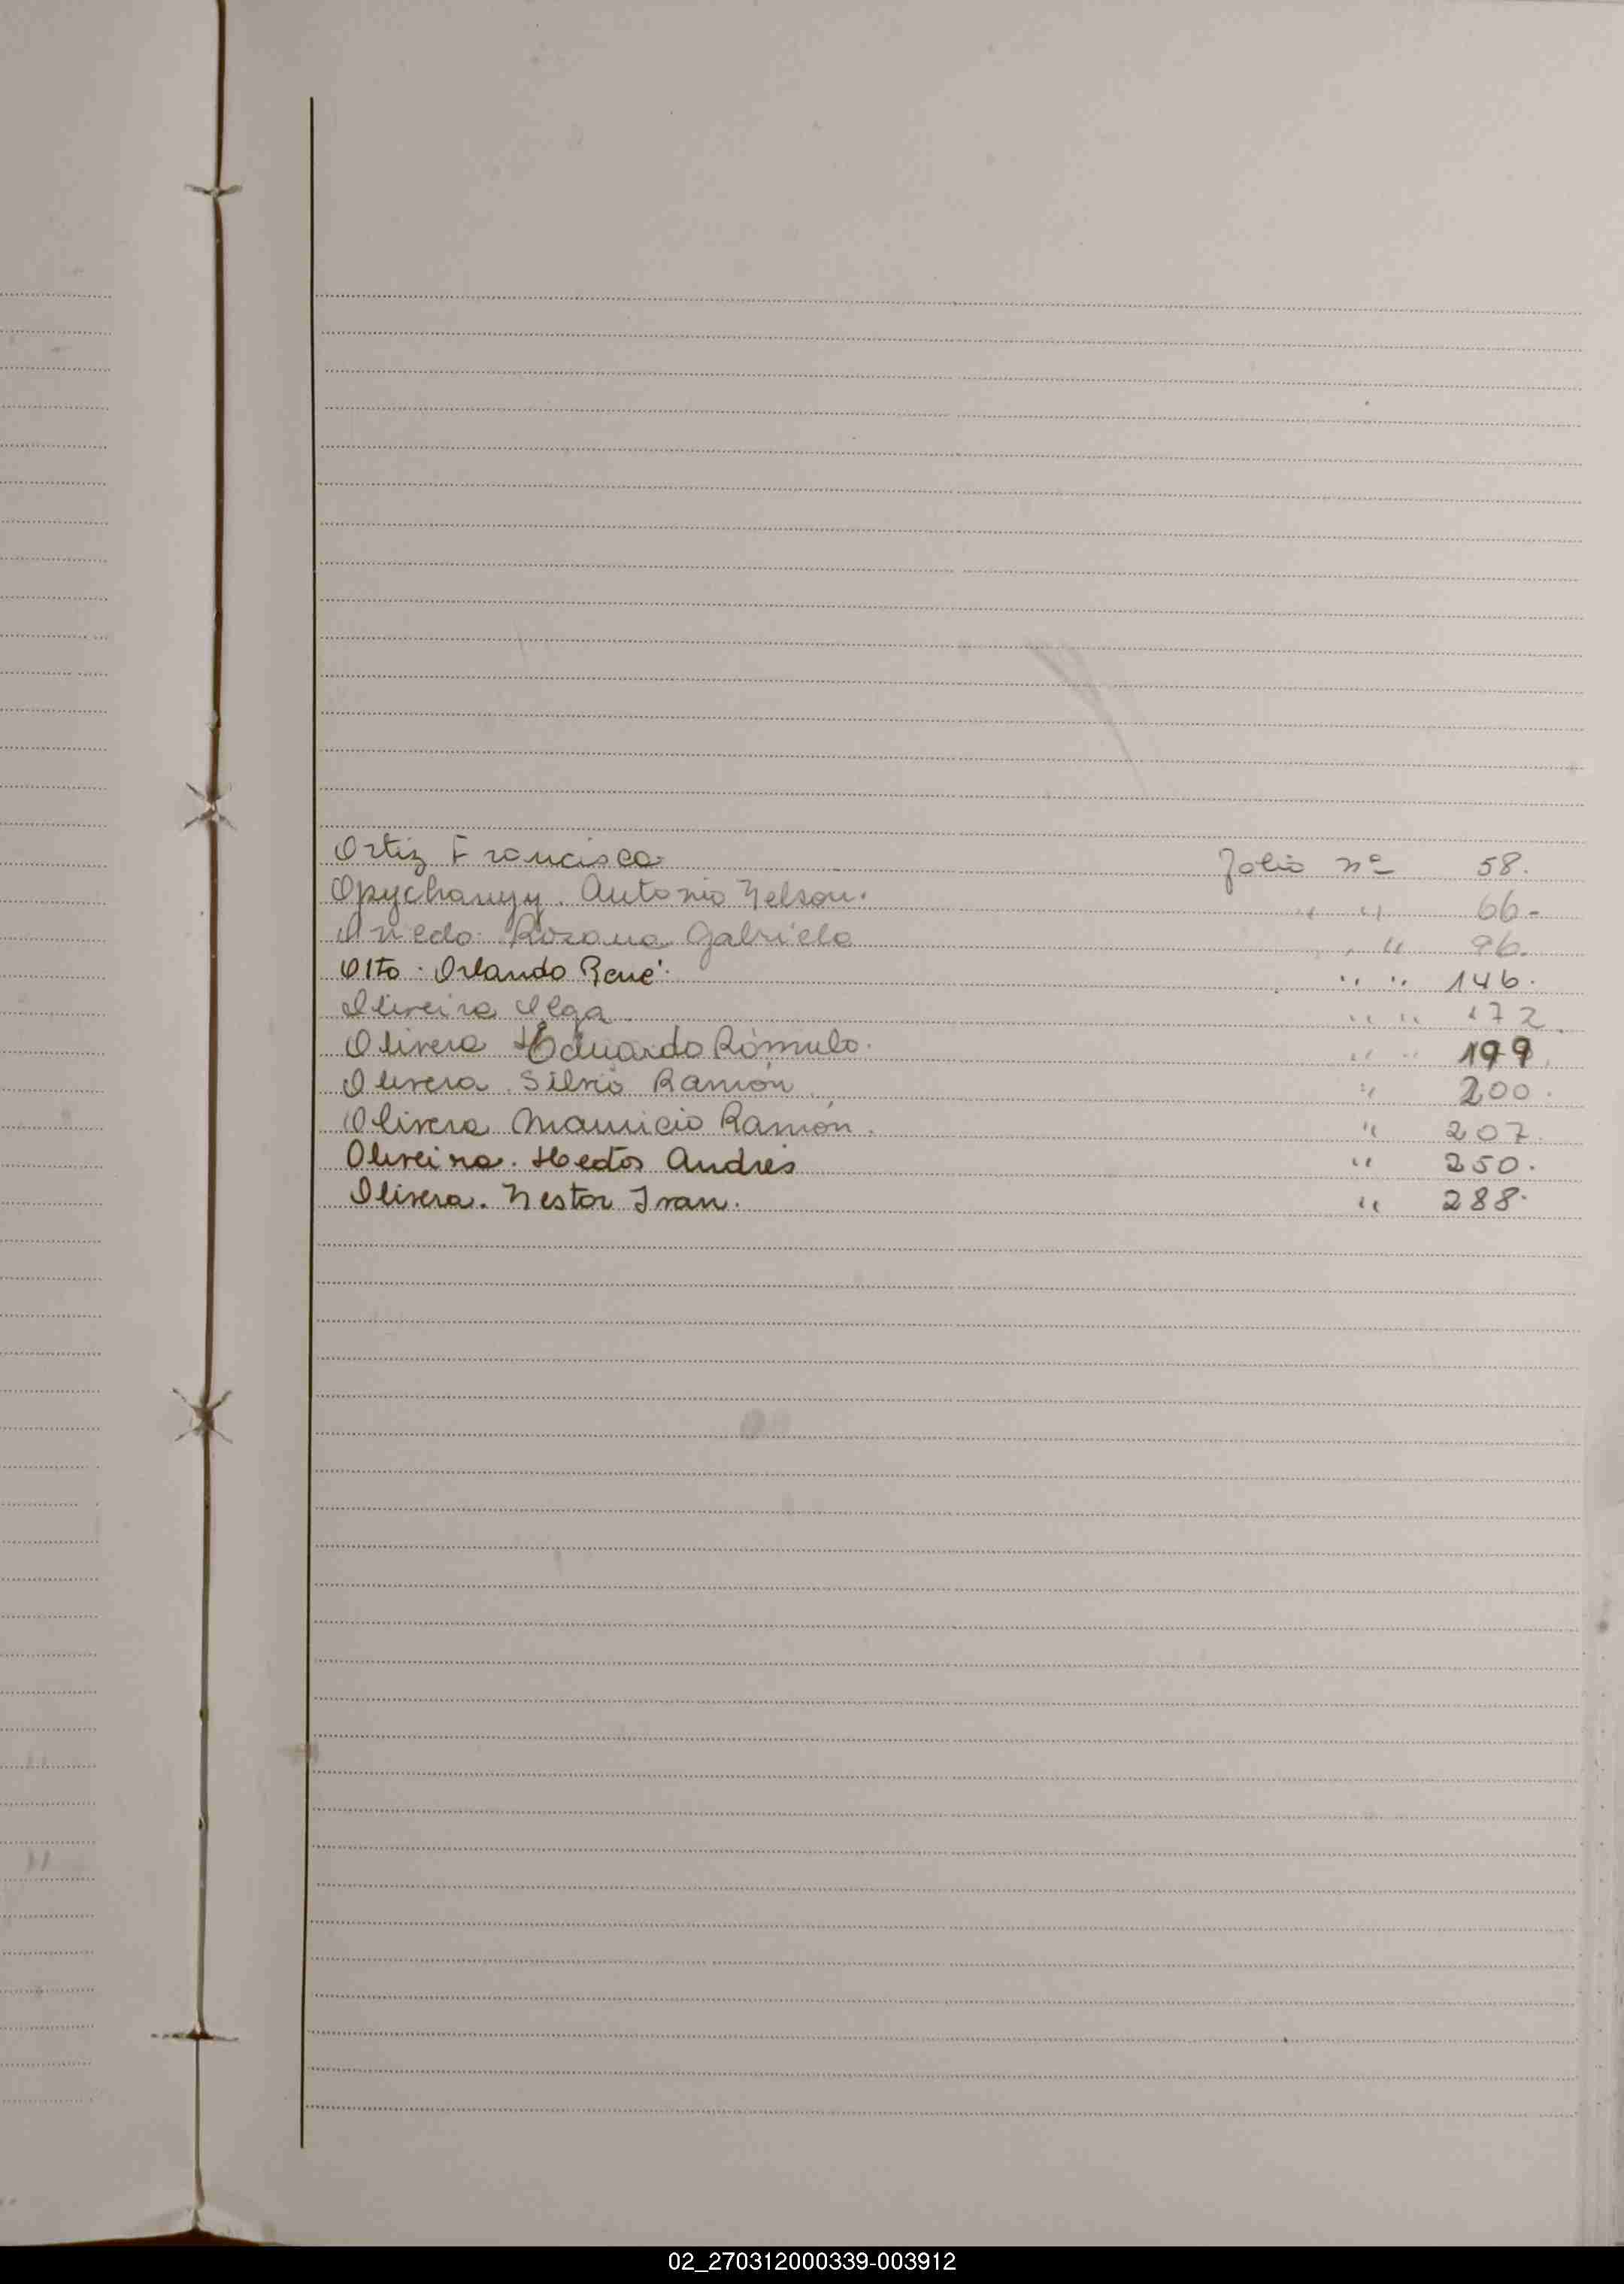 Ortiz Francisca folio nº 58.
Opychanyy. Antonio Nelson. " " 66.-
Rosana Gabriela " " 96.
Olto. Orlando René. " " 146.
Oliveira Olga " " 172.
Olivera Eduardo Rómulo. " " 199.
Olivera. Silvio Ramón " 200.
Olivera Mauricio Ramón. " 207.
Oliveira. Hector Andrés " 250.
Olivera. Nestor Ivan. " 288.
02_270312000339-003912